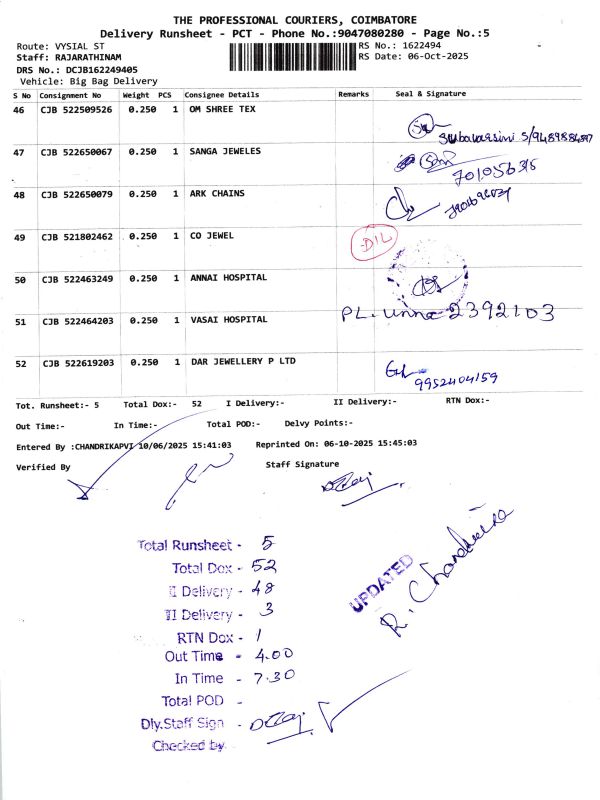 THE PROFESSIONAL COURIERS, COIMBATORE
Delivery Runsheet - PCT - Phone No.:9047080280 - Page No.:5
Route: VYSIAL ST
RS No.: 1622494
Staff: RAJARATHINAM
RS Date: 06-Oct-2025
DRS No.: DCJB162249405
Vehicle: Big Bag Delivery
S No Consignment No Weight PCS Consignee Details Remarks Seal & Signature
46 CJB 522509526 0.250 1 OM SHREE TEX
47 CJB 522650067 0.250 1 SANGA JEWELES
48 CJB 522650079 0.250 1 ARK CHAINS
49 CJB 521802462 0.250 1 CO JEWEL D/L
50 CJB 522463249 0.250 1 ANNAI HOSPITAL
51 CJB 522464203 0.250 1 VASAI HOSPITAL 2392103
52 CJB 522619203 0.250 1 DAR JEWELLERY P LTD
9952404159
Tot. Runsheet:- 5 Total Dox:- 52 I Delivery:- II Delivery:- RTN Dox:-
Out Time:- In Time:- Total POD:- Delvy Points:-
Entered By :CHANDRIKAPVI 10/06/2025 15:41:03 Reprinted On: 06-10-2025 15:45:03
Verified By Staff Signature
Total Runsheet - 5
Total Dox - 52
I Delivery - 48
II Delivery - 3
RTN Dox - 1
Out Time - 4.00
In Time - 7.30
Total POD -
Dly.Staff Sign -
Checked by.
UPDATED
R. Chandrika